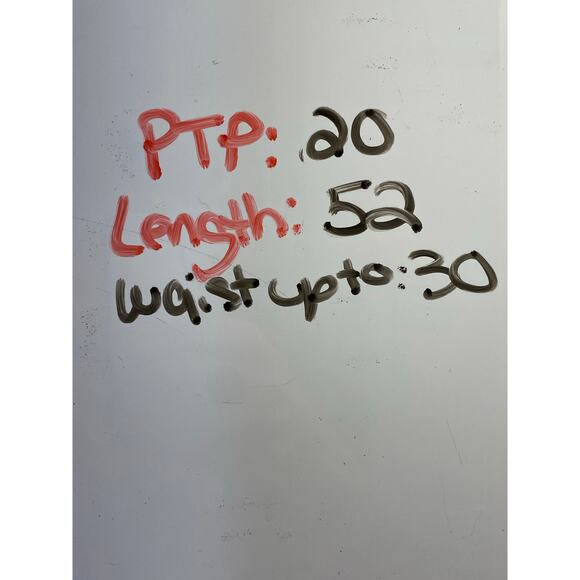 PTP: 20
Length: 52
waist up to: 30